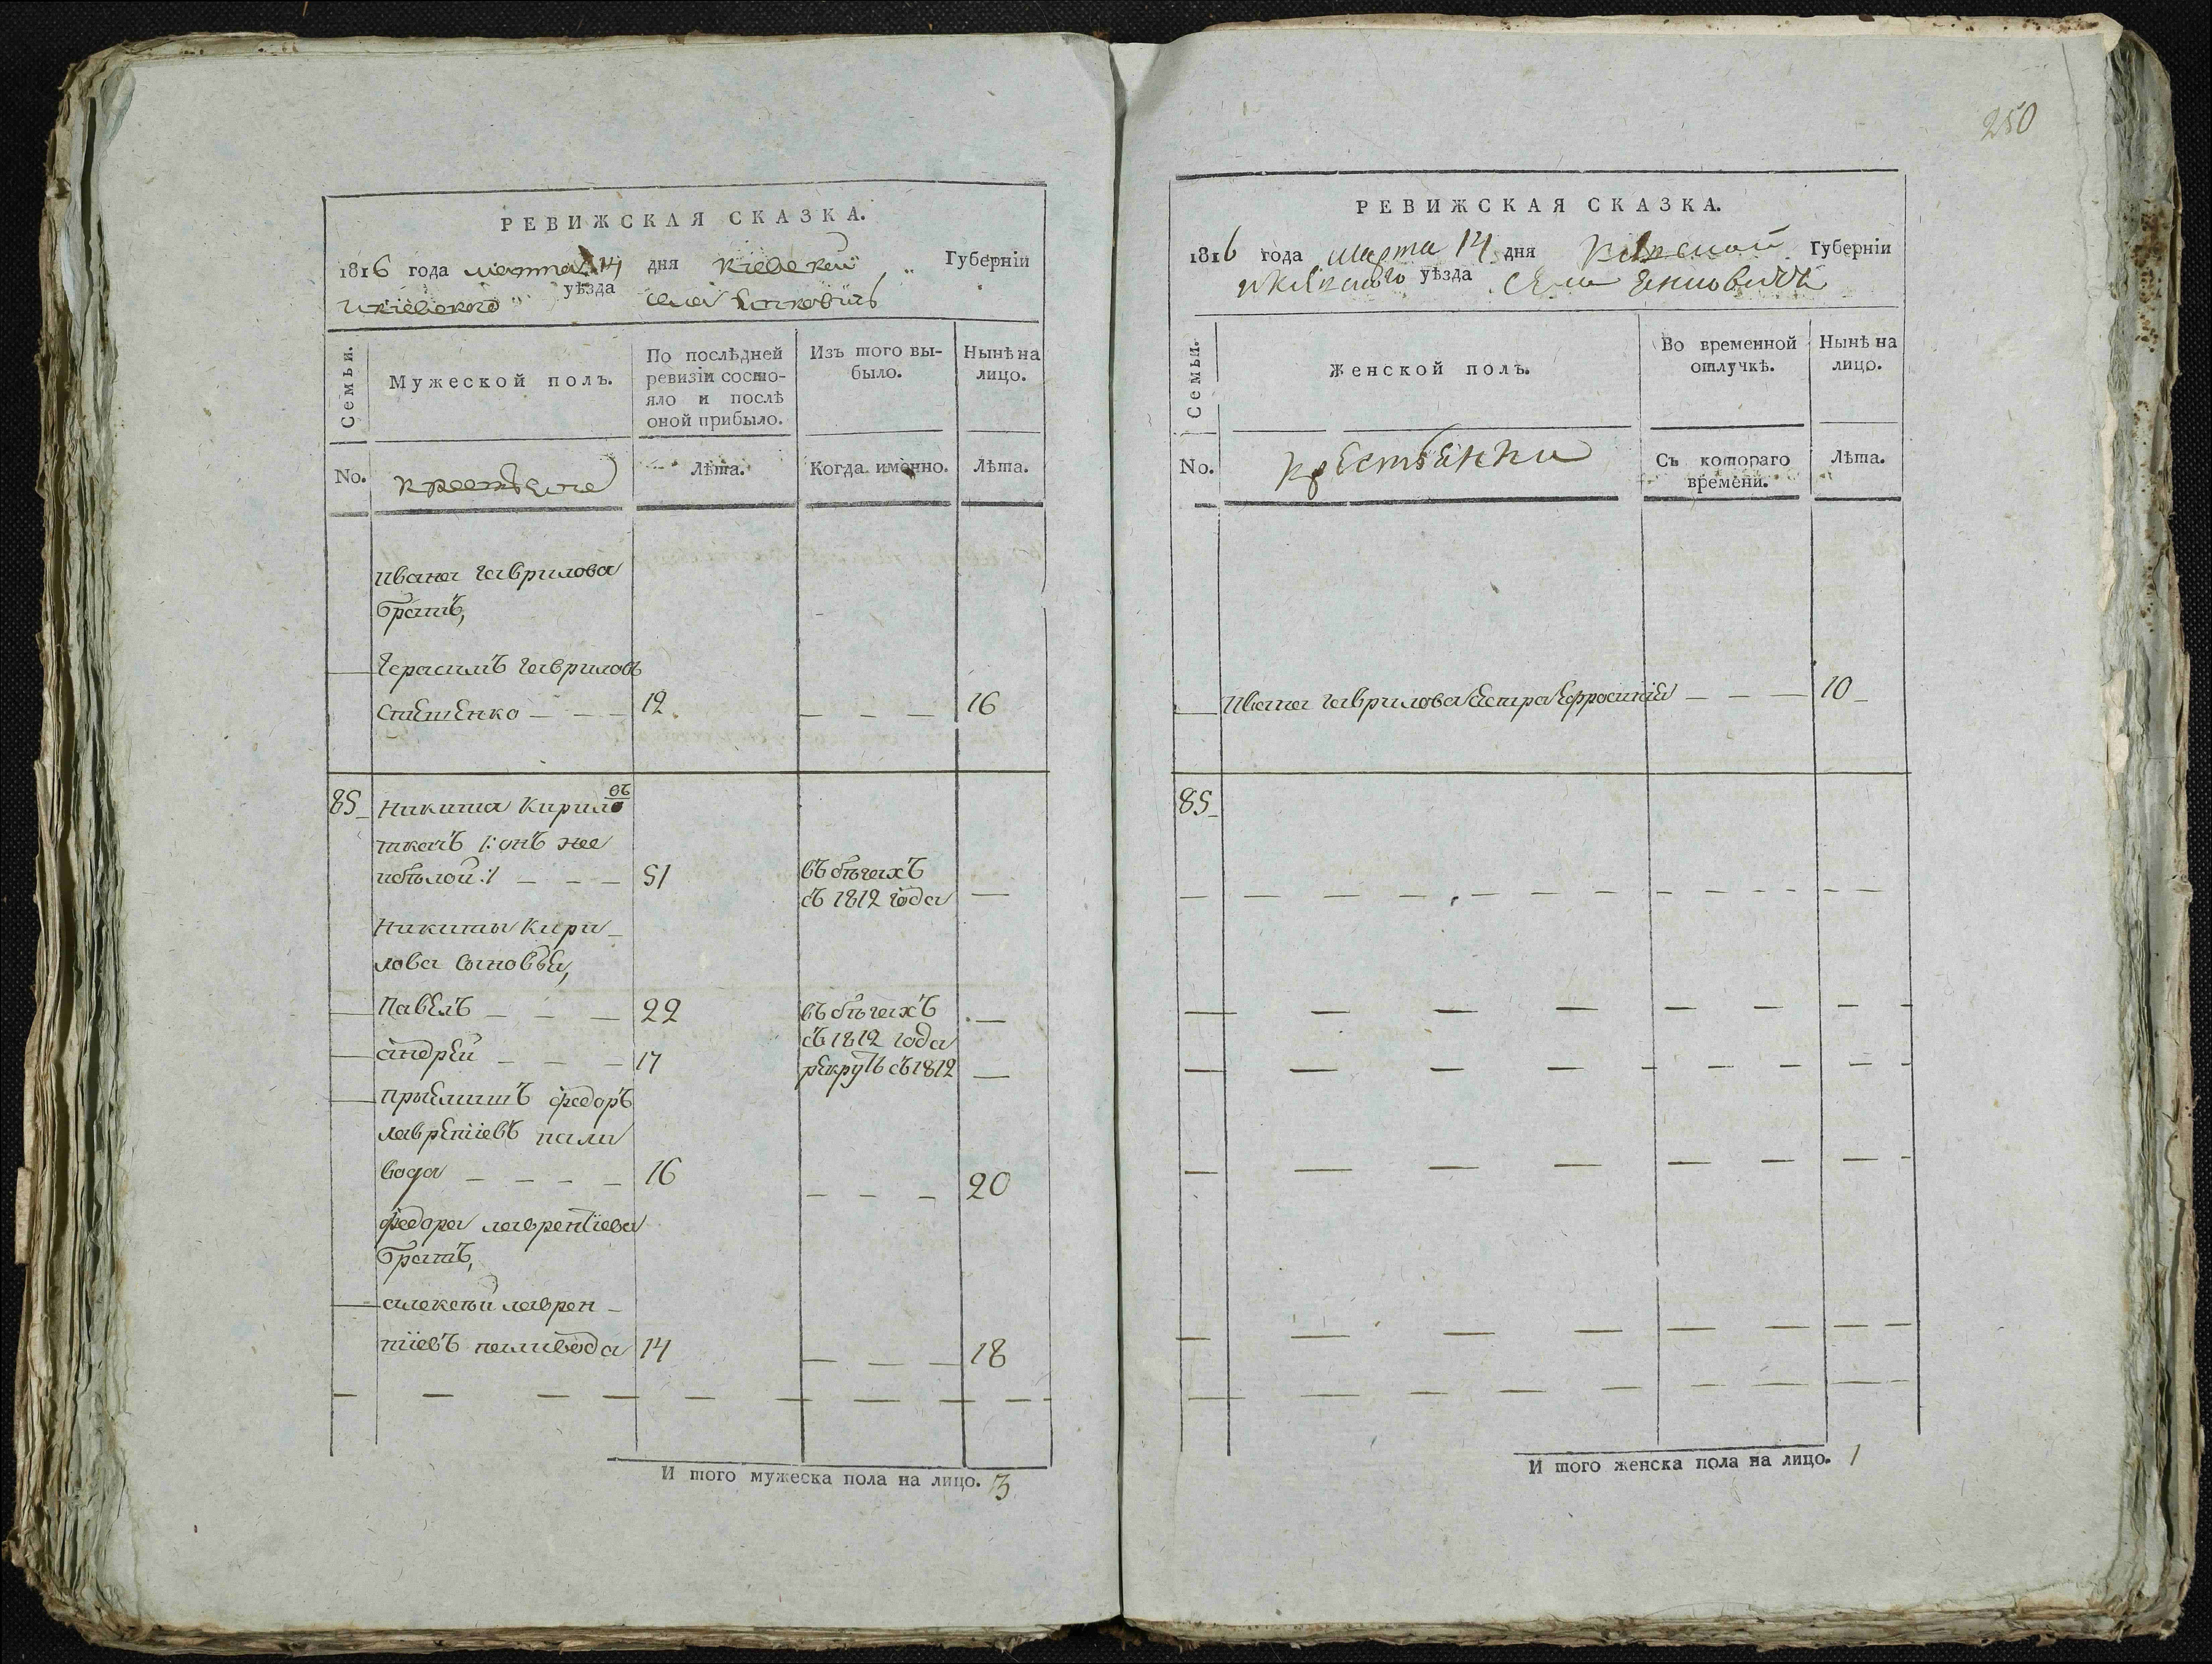 РЕВИЖСКАЯ СКАЗКА.
1816 года марта 14 дня Кіевской Губерніи
и Кіевского уѣзда села
Семьи.
Мужеской полъ.
По послѣдней
ревизіи состо-
яло и послѣ
оной прибыло.
Изъ того вы-
было.
Нынѣ на
лицо.
No.
крестьяне
Лѣта.
Когда именно.
Лѣта.
Ивана Гаврилова
братъ,
Герасимъ Гавриловъ
Стешенко — — — 12 — — — 16
85 Никита Кириловъ
ткачъ /: онъ же
— — — 51 въ бѣгахъ
съ 1812 года —
Никиты Кири-
лова сыновья,
Павелъ — — — 22 въ бѣгахъ —
съ 1812 года
андрей — — — 17 рекрутъ съ 1812 —
прыемышъ федоръ
лаврентіевъ пали
вода — — — — 16 — — — 20
федора лаврентіева
братъ,
алексѣй лаврен-
тіевъ паливода 14 — — — 18
И того мужеска пола на лицо. 3
250
РЕВИЖСКАЯ СКАЗКА.
1816 года марта 14 дня Кіевской Губерніи
и Кіевского уѣзда села
Семьи.
Женской полъ.
Во временной
отлучкѣ.
Нынѣ на
лицо.
No.
крестьянки
Съ котораго
времени.
Лѣта.
Ивана Гаврилова сестра Ефросинія — — — 10
85
И того женска пола на лицо. 1